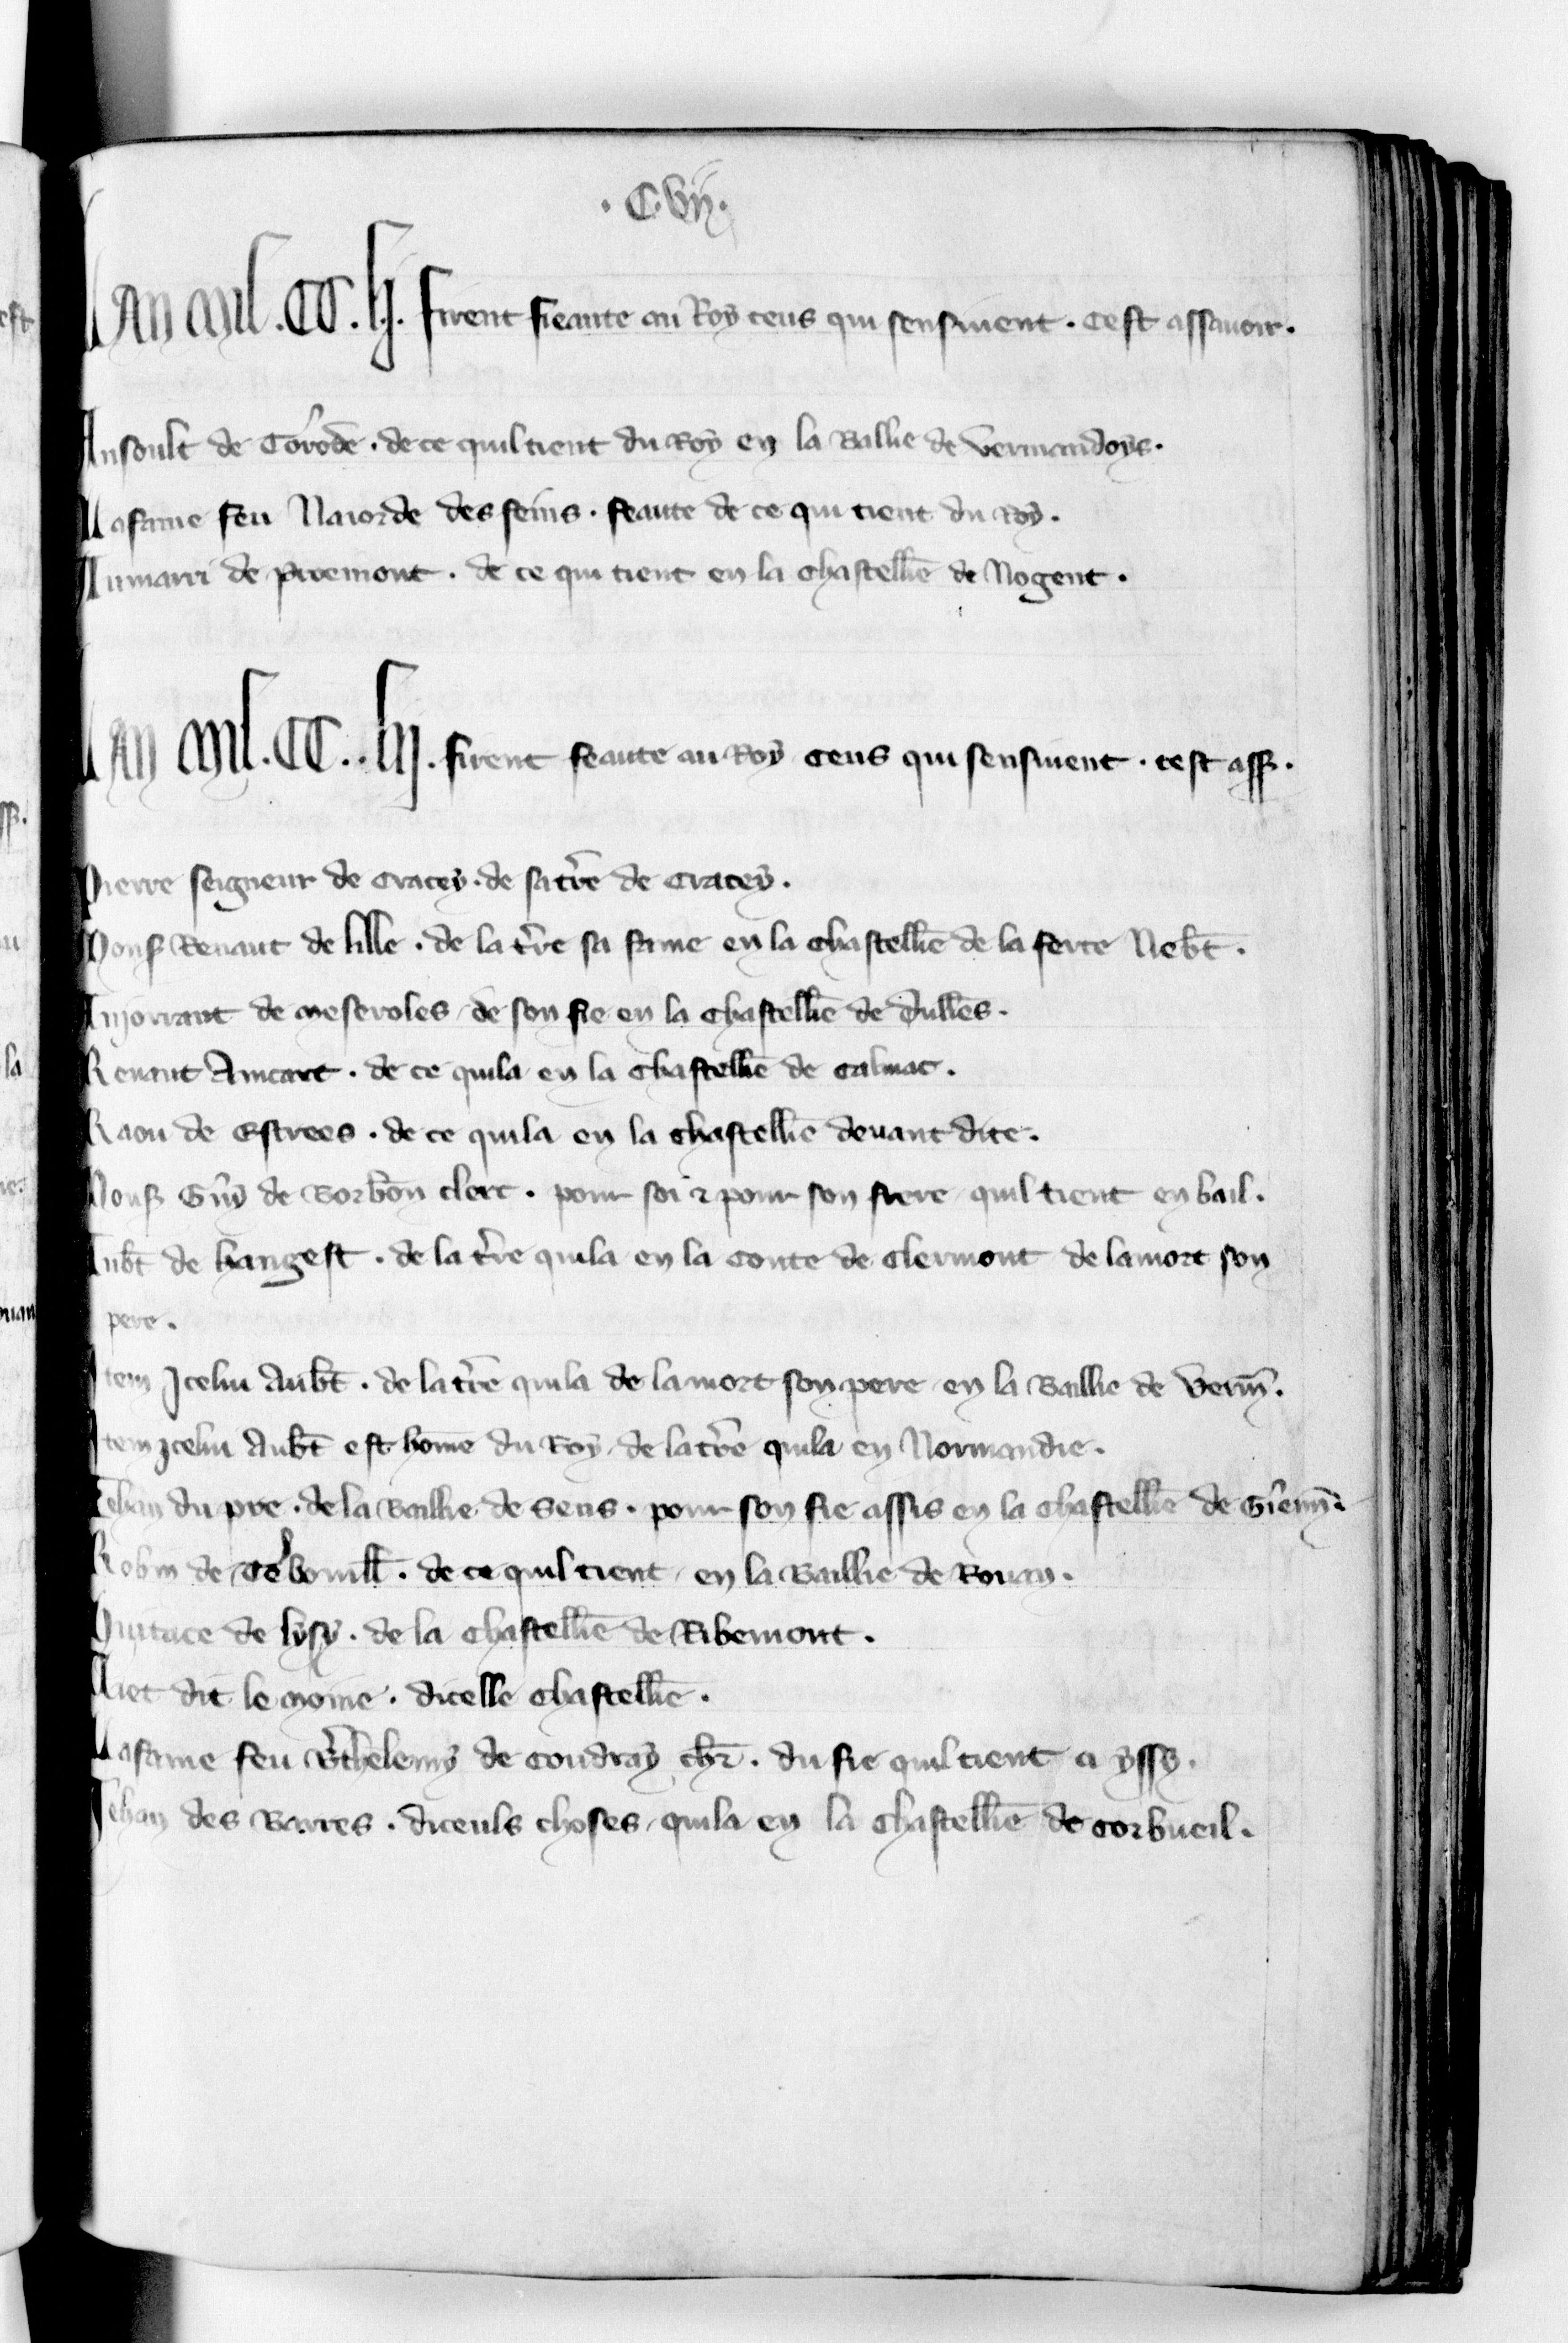 . C.vij.
Lan mil . CC . lj . firent fieaute au Roy ceus qui sensiuent . Cest assauoir .
Ansoult de Cor̾ode . de ce quil tient du Roy en la Ballie de Vermandoys .
La fame feu Naiorde des feins . feaute de ce qui tient du Roy .
Aumarri de premont . de ce qui tient en la Chastell̄ie de Nogent .
Lan mil . CC . . lij . firent feaute au Roy ceus qui sensiuent . cest ass̄ .
Pierre seigneur de Cracey . de sa t̾re de Cracey .
Mons̄ Renaut de lille . de la t̾re sa fame en la Chastell̄ie de la ferte Neb̄t .
Anjorrant de meseroles de son fie en la Chastell̄ie de Dull̄es .
Renaut Aucart . de ce quila en la Chastell̄ie de Calmac .
Raou de Estrees . de ce quila en la Chastell̄ie deuant dite .
Mons̄ Guy de Borbon clerc . pour soi ⁊ pour son frere quil tient en bail .
Aub̄t de hangest . de la t̾re quila en la Conte de Clermont de lamort son
pere .
Item Icelui Aub̄t . de la t̾re quila de lamort son pere en la Baillie de Verm̄ .
Item icelui Aub̄t est home du Roy de la t̾re quila en Normandie .
Jehan du pre . de la Baillie de Sens . pour son fie assis en la Chastell̄ie de G̾em̄ .
Robin de C̾bouuill̄ . de ce quil tient en la Baillie de Rouan .
Huitace de lysy . de la Chastell̄ie de Ribemont .
Aliet dit le moine . dicelle Chastell̄ie .
La fame feu B̾thelemy de Coudray ch̄r . du fie quil tient a yssy .
Jehan des Barres . diceuls choses quila en la Chastell̄ie de Corbueil .